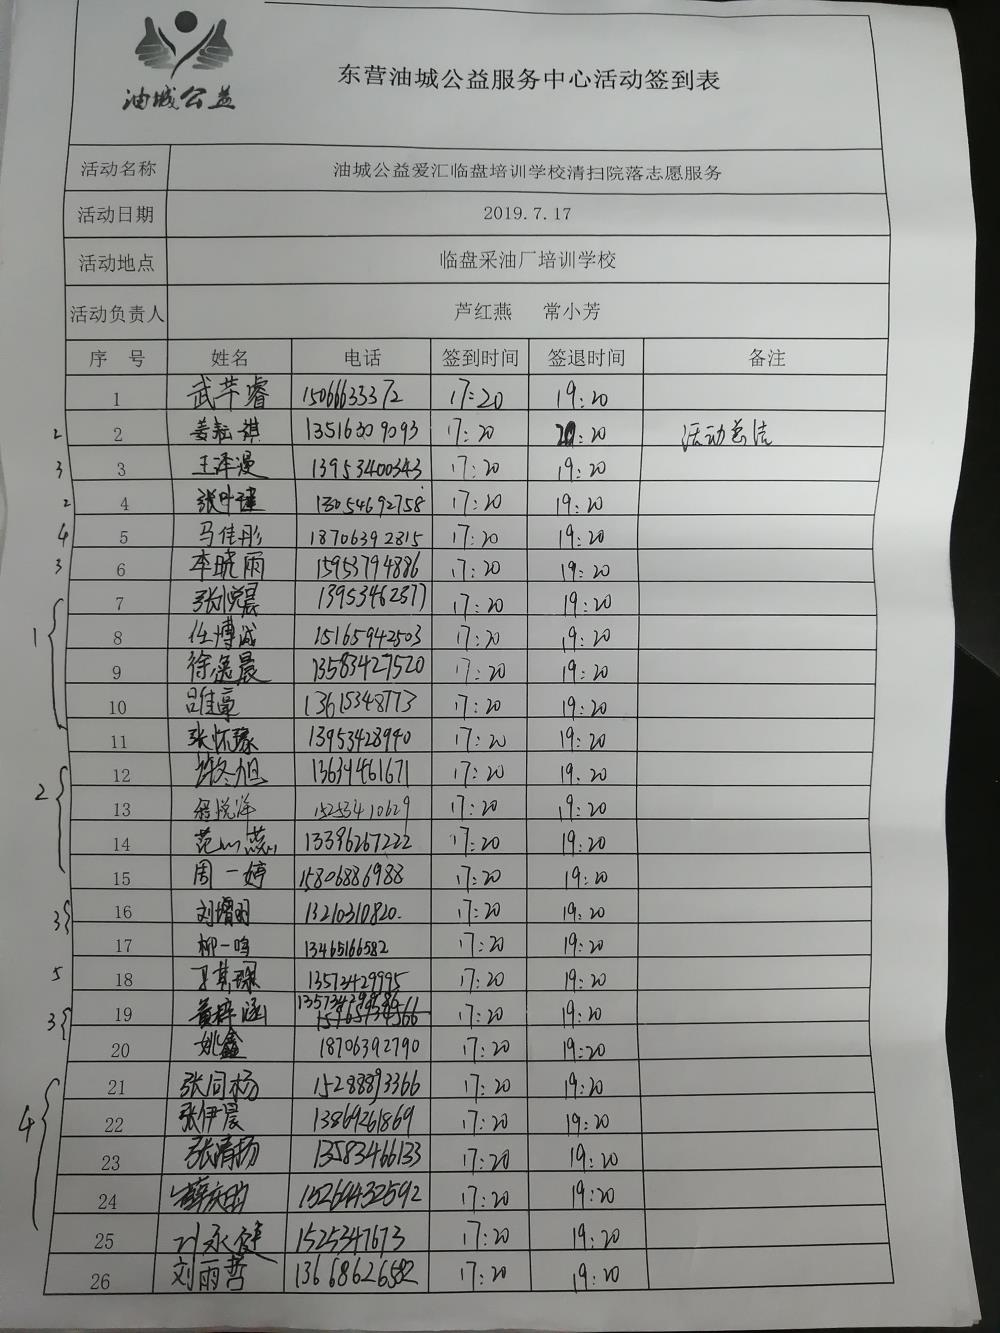 油城公益
东营油城公益服务中心活动签到表
活动名称 油城公益爱汇临盘培训学校清扫院落志愿服务
活动日期 2019.7.17
活动地点 临盘采油厂培训学校
活动负责人 芦红燕 常小芳
序 号 姓名 电话 签到时间 签退时间 备注
1 武芊睿 15066633372 17:20 19:20
2 2 姜耘祺 13516309093 17:20 20:20 活动总结
3 3 王泽漫 13953400343 17:20 19:20
2 4 张叶谨 13054692758 17:20 19:20
4 5 马佳彤 18706392815 17:20 19:20
3 6 李晓雨 15953794886 17:20 19:20
7 张悦晨 13953462377 17:20 19:20
1 8 任博成 15165942503 17:20 19:20
9 徐逸晨 13583427520 17:20 19:20
10 吕佳豪 13615348773 17:20 19:20
11 张怀豫 13953428940 17:20 19:20
12 许冬旭 13639461671 17:20 19:20
2 13 程悦洋 15253410629 17:20 19:20
14 范心蕊 13396267222 17:20 19:20
15 周一婷 15806886988 17:20 19:20
3 16 刘增明 13210310820. 17:20 19:20
17 柳一鸣 13465166582 17:20 19:20
5 18 13573429995 17:20 19:20
3 19 黄梓涵 17:20 19:20
20 姚鑫 18706392790 17:20 19:20
21 张同杨 15288893366 17:20 19:20
4 22 张伊晨 13869261869 17:20 19:20
23 张清扬 13583466133 17:20 19:20
24 15269432592 17:20 19:20
25 刘永健 1525347673 17:20 19:20
26 刘雨哲 13668626582 17:20 19:20